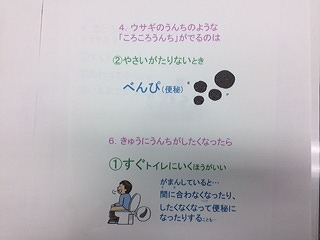 4. ウサギのうんちのような
「ころころうんち」がでるのは
②やさいがたりないとき
べんぴ(便秘)
6. きゅうにうんちがしたくなったら
①すぐトイレにいくほうがいい
がまんしていると…
間に合わなくなったり、
したくなくなって便秘に
なったりすることも…